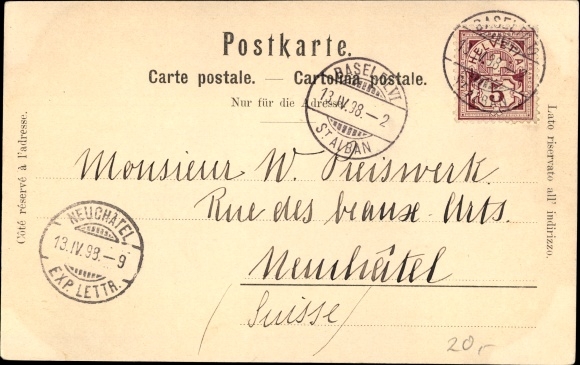 Postkarte.
Carte postale. — Cartolina postale.
Nur für die Adresse.
BASEL VI.
13.IV.98.–2
ST ALBAN
BASEL
HELVETIA
5
Côté réservé à l'adresse.
Lato riservato all' indirizzo.
Monsieur W. Preiswerk.
Rue des beaux-Arts.
Neuchâtel
Suisse/
NEUCHATEL
13.IV.98.–9
EXP. LETTR.
20,-